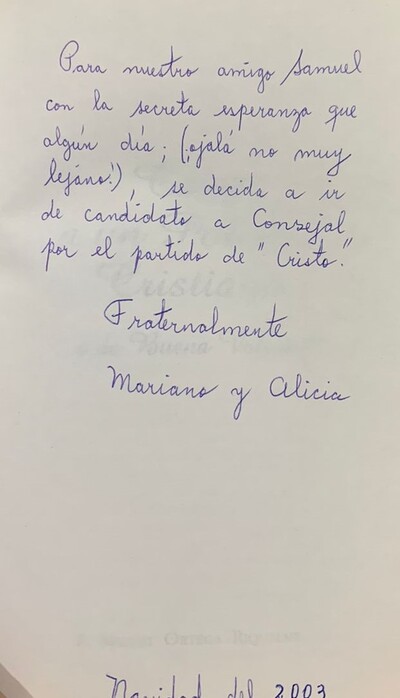 Para nuestro amigo Samuel
con la secreta esperanza que
algún día; (¡ojalá no muy
lejano!), se decida a ir
de candidato a Consejal
por el partido de "Cristo."
Fraternalmente
Mariano y Alicia
Navidad del 2003